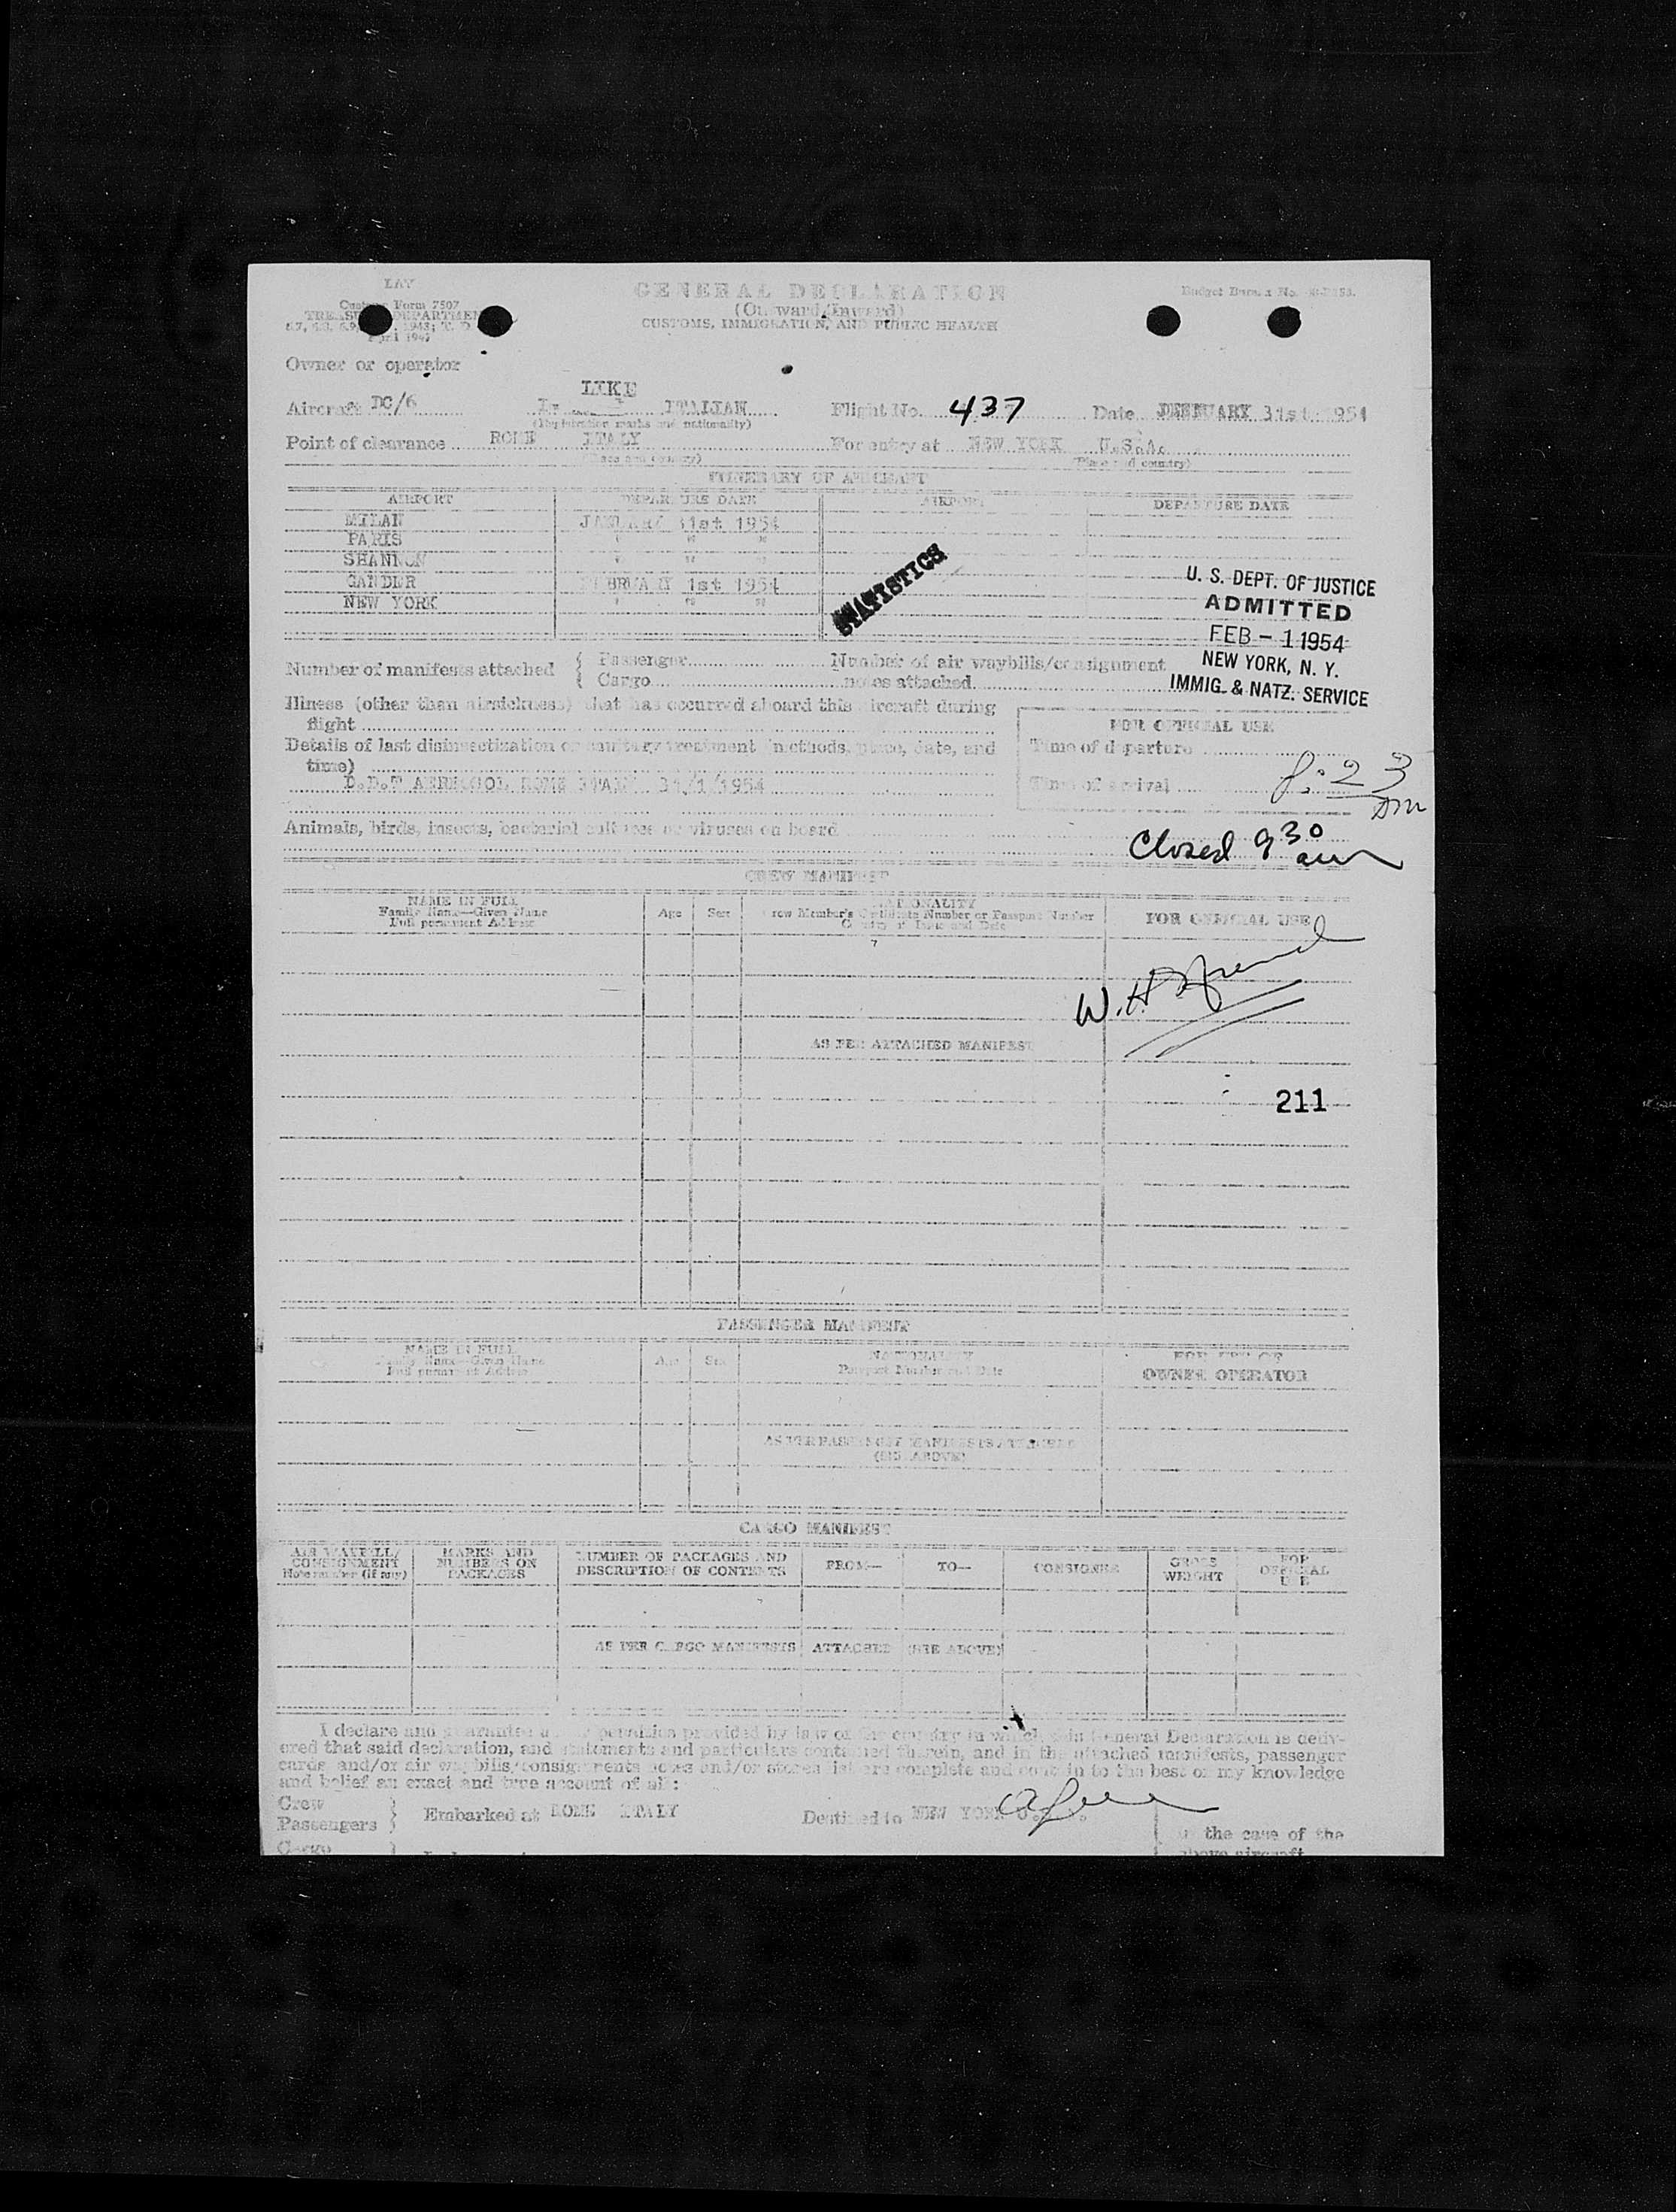 LAV
GENERAL DECLARATION
(Outward/Inward)
CUSTOMS, IMMIGRATION, AND PUBLIC HEALTH
Customs Form 7507
TREASURY DEPARTMENT
April 1947
Owner or operator
Aircraft DC/6 LIKE ITALIAN Flight No. 437 Date 31st 1954
(Registration marks and nationality)
Point of clearance ROME ITALY For entry at NEW YORK U.S.A.
(Place and country) (Place and country)
ITINERARY OF AIRCRAFT
AIRPORT DEPARTURE DATE AIRPORT DEPARTURE DATE
MILAN JANUARY 31st 1954
PARIS " " "
SHANNON " " "
GANDER FEBRUARY 1st 1954
NEW YORK " " "
STATISTICS
U. S. DEPT. OF JUSTICE
ADMITTED
FEB - 1 1954
NEW YORK, N. Y.
IMMIG. & NATZ. SERVICE
Number of manifests attached { Passenger
Cargo
Number of air waybills/consignment
notes attached
Illness (other than airsickness) that has occurred aboard this aircraft during
flight
Details of last disinsectization or sanitary treatment (methods, place, date, and
time)
D.D.T AEROSOL ROME ITALY 31/1/1954
FOR OFFICIAL USE
Time of departure
Time of arrival 8:23
am
Animals, birds, insects, bacterial cultures or viruses on board
Closed 9 30 am
CREW MANIFEST
NAME IN FULL
Family Name—Given Name
Full permanent Address
Age Sex
NATIONALITY
Crew Member's Certificate Number or Passport Number
Country of Issue and Date
FOR OFFICIAL USE
W. H.
AS PER ATTACHED MANIFEST
211
PASSENGER MANIFEST
NAME IN FULL
Family Name—Given Name
Full permanent Address
Age Sex
NATIONALITY
Passport Number and Date
FOR USE OF
OWNER OPERATOR
AS PER PASSENGER MANIFESTS ATTACHED
(SEE ABOVE)
CARGO MANIFEST
AIR WAYBILL/
CONSIGNMENT
Note number (if any)
MARKS AND
NUMBERS ON
PACKAGES
NUMBER OF PACKAGES AND
DESCRIPTION OF CONTENTS
FROM—
TO—
CONSIGNEE
GROSS
WEIGHT
FOR
OFFICIAL
USE
AS PER CARGO MANIFESTS ATTACHED (SEE ABOVE)
I declare and guarantee penalties provided by law of the country in which said General Declaration is deliv-
ered that said declaration, and statements and particulars contained therein, and in the attached manifests, passenger
cards and/or air waybills/consignments notes and/or stores list are complete and contain to the best of my knowledge
and belief an exact and true account of all:
Crew
Passengers } Embarked at ROME ITALY Destined to NEW YORK
in the case of the
above aircraft
Cargo